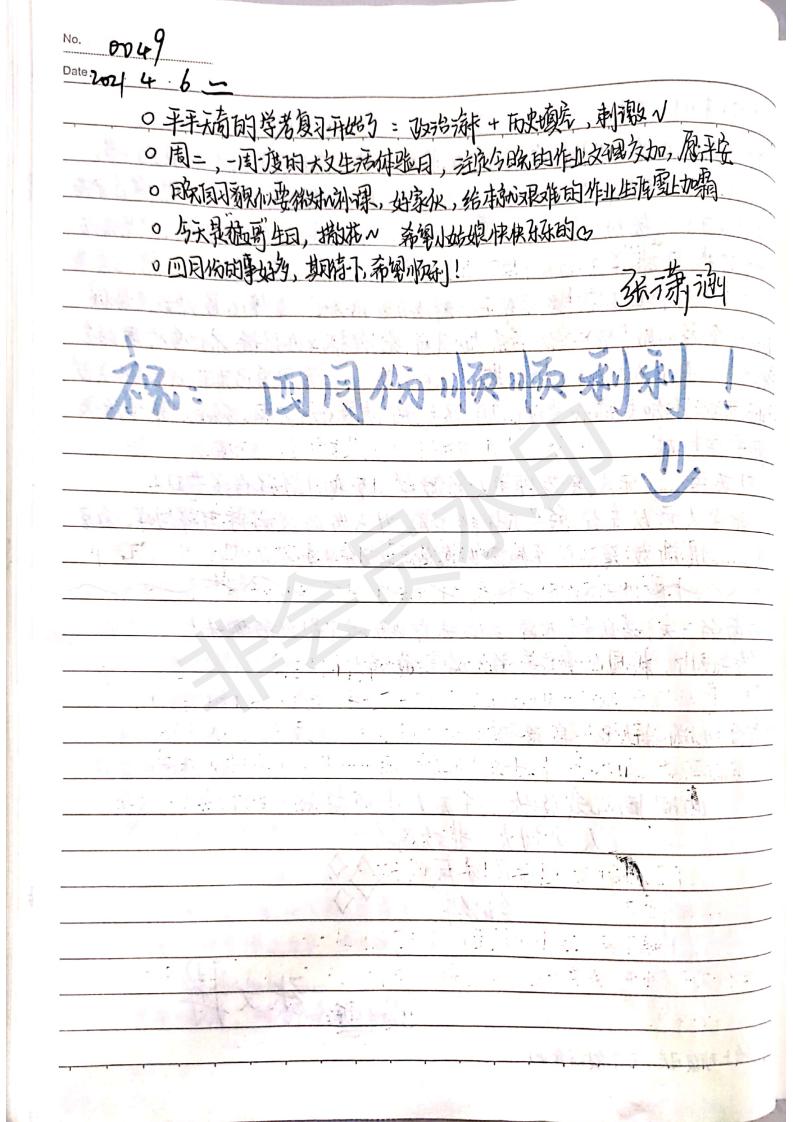 No. 0049
Date. 2021 4 · 6 二
○ 平平无奇的学考复习开始了：政治海卡 + 历史填空，刺激√
○ 周二，一周一度的大文生活体验日，注定今晚的作业文理交加，愿平安
○ 晚自习貌似要微机补课，好家伙，给本就艰难的作业生涯雪上加霜
○ 今天是"猛哥"生日，撒花~ 希望小姑娘快快乐乐的♡
○ 四月份的事好多，期待一下，希望顺利！
张潇涵
祝：四月份顺顺利利！
非会员水印